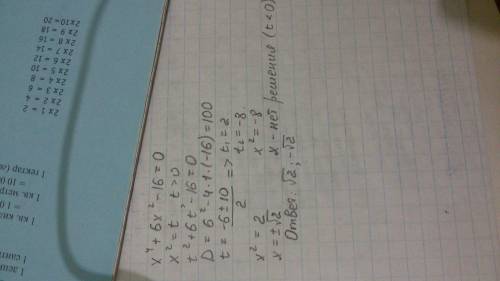 x⁴+6x²-16=0
x²=t   t>0
t²+6t-16=0
D=6²-4·1·(-16)=100
t = (-6±10)/2 => t₁=2
t₂=-8
x²=2   x²=-8
x=±√2   x - нет решения (t<0)
Ответ: √2; -√2
2 x 1 = 2
2 x 2 = 4
2 x 3 = 6
2 x 4 = 8
2 x 5 = 10
2 x 6 = 12
2 x 7 = 14
2 x 8 = 16
2 x 9 = 18
2 x 10 = 20
1 гектар
1 кв. метр
1 кв.